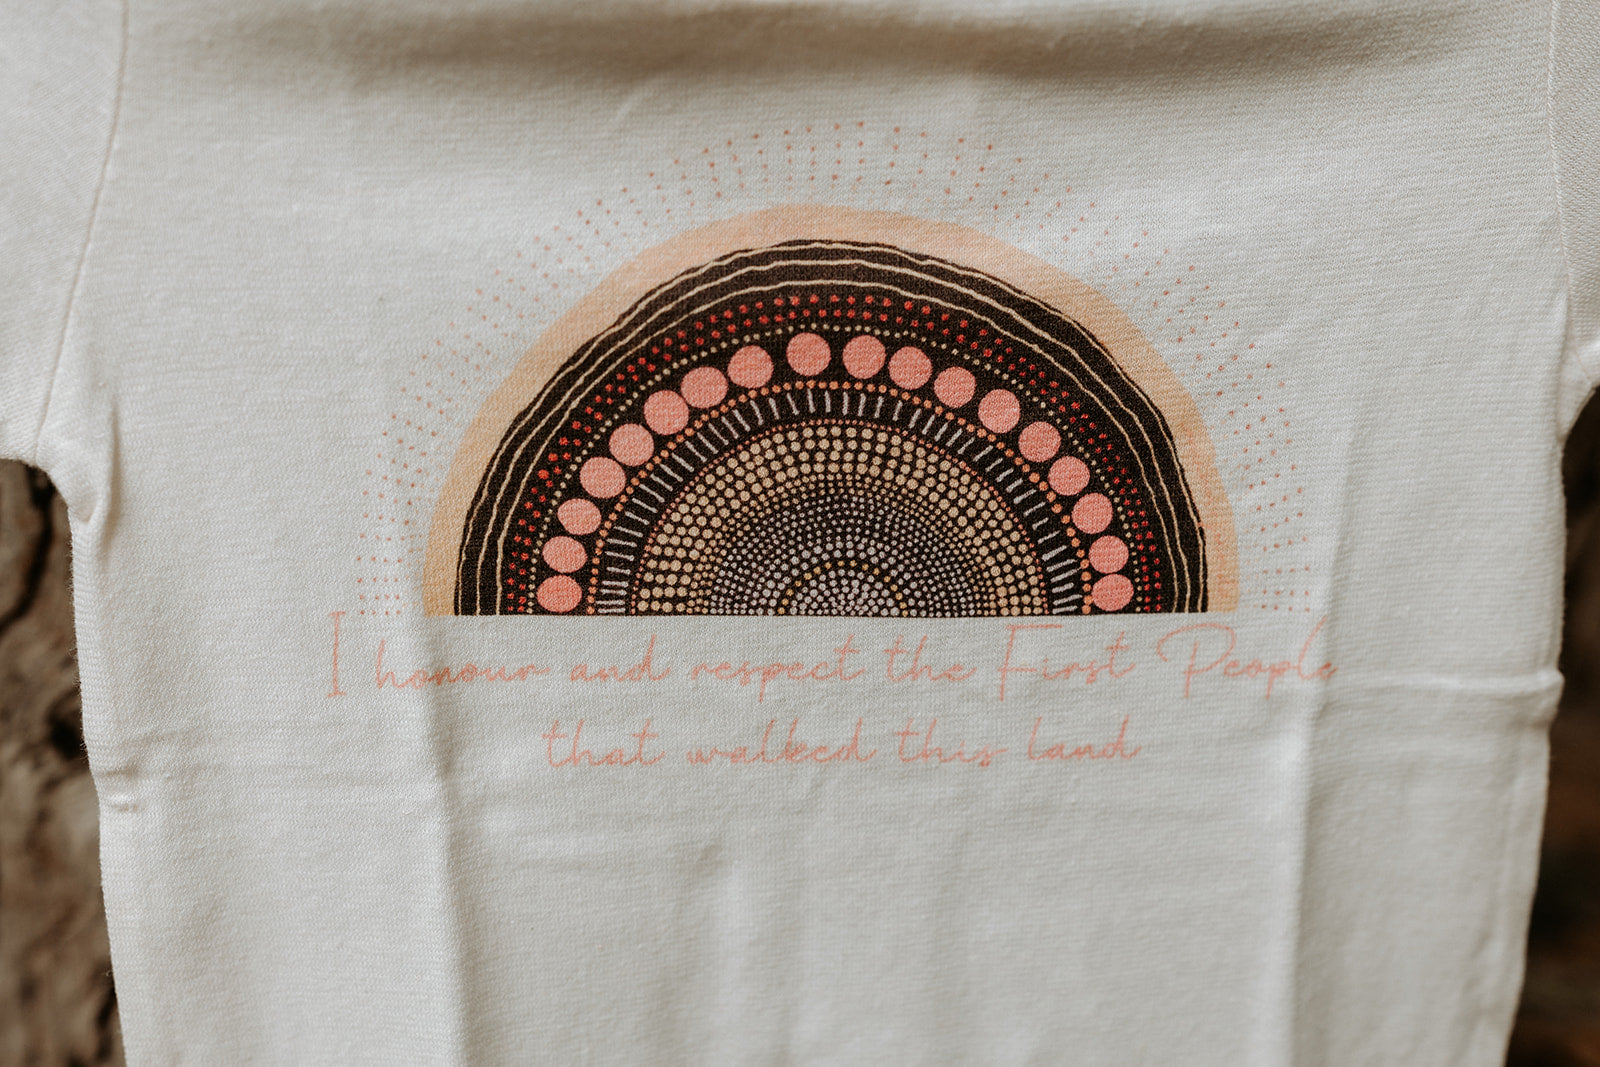 I honour and respect the First People
that walked this land